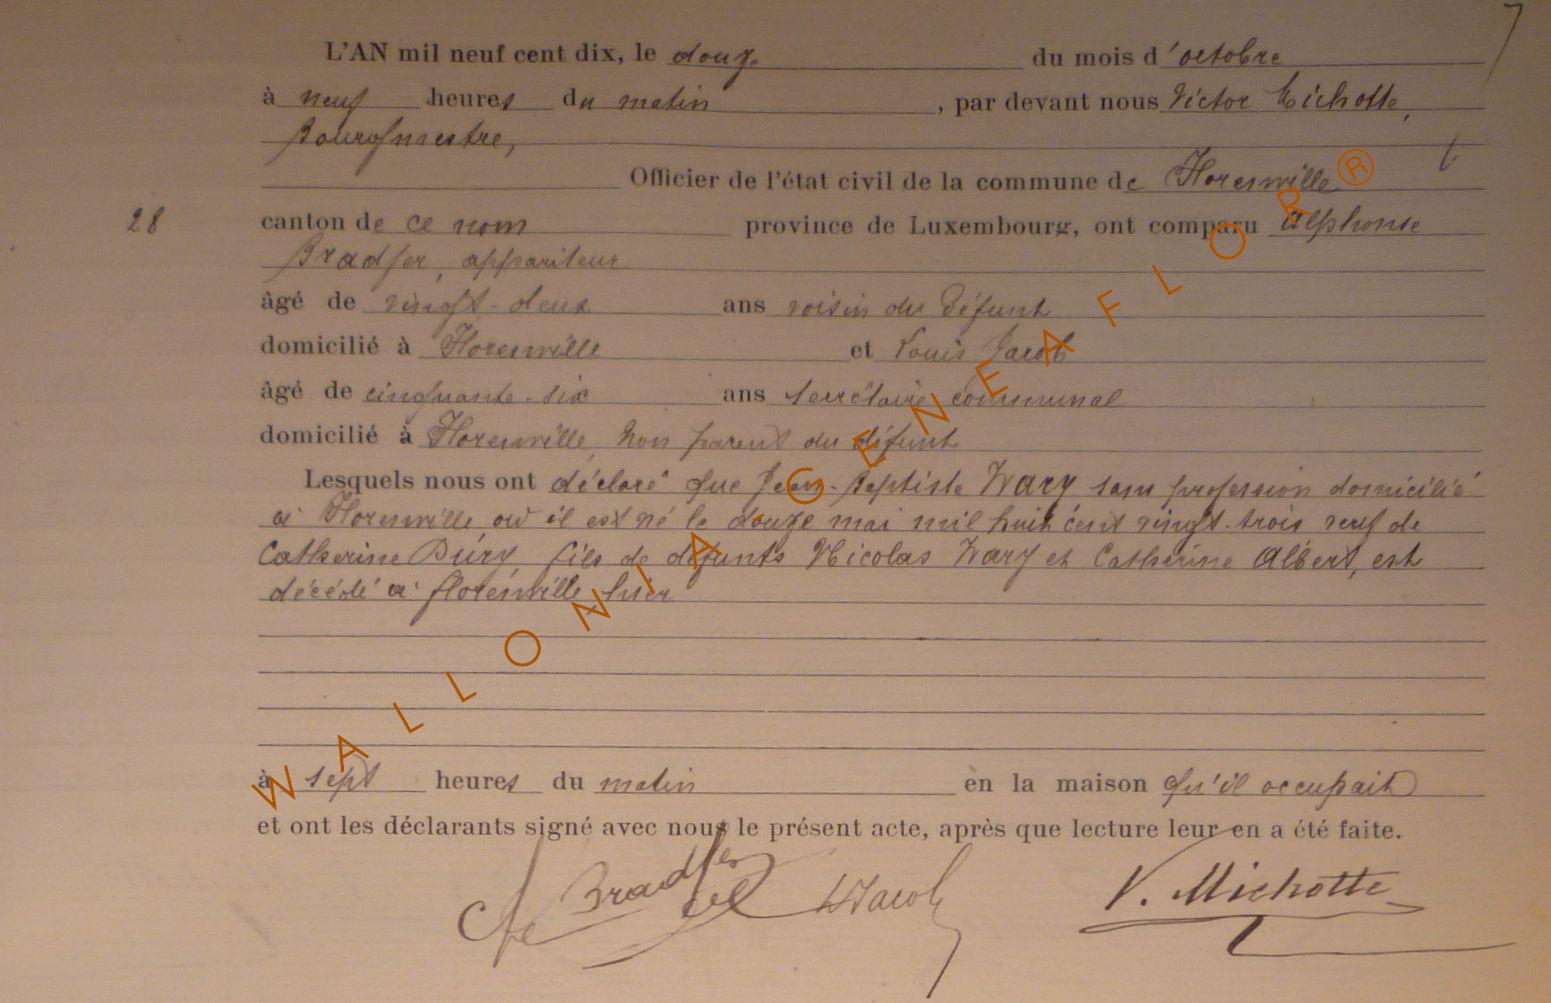 L'AN mil neuf cent dix, le douze du mois d'octobre
à neuf heures du matin, par devant nous Victor Michotte,
Bourgmestre,
Officier de l'état civil de la commune de Florenville
28
canton de ce nom province de Luxembourg, ont comparu Alphonse
Bradfer, appariteur
âgé de vingt-deux ans voisin du défunt
domicilié à Florenville et Louis Jacob
âgé de cinquante-six ans secrétaire communal
domicilié à Florenville, non parent du défunt
Lesquels nous ont déclaré que Jean-Baptiste Wary sans profession domicilié
à Florenville où il est né le douze mai mil huit cent vingt-trois veuf de
Catherine Dury, fils de défunts Nicolas Wary et Catherine Albert, est
décédé à florenville hier
à sept heures du matin en la maison qu'il occupait
et ont les déclarants signé avec nous le présent acte, après que lecture leur en a été faite.
Bradfer LJacob V. Michotte
WALLONIA-GENEAFLOR®